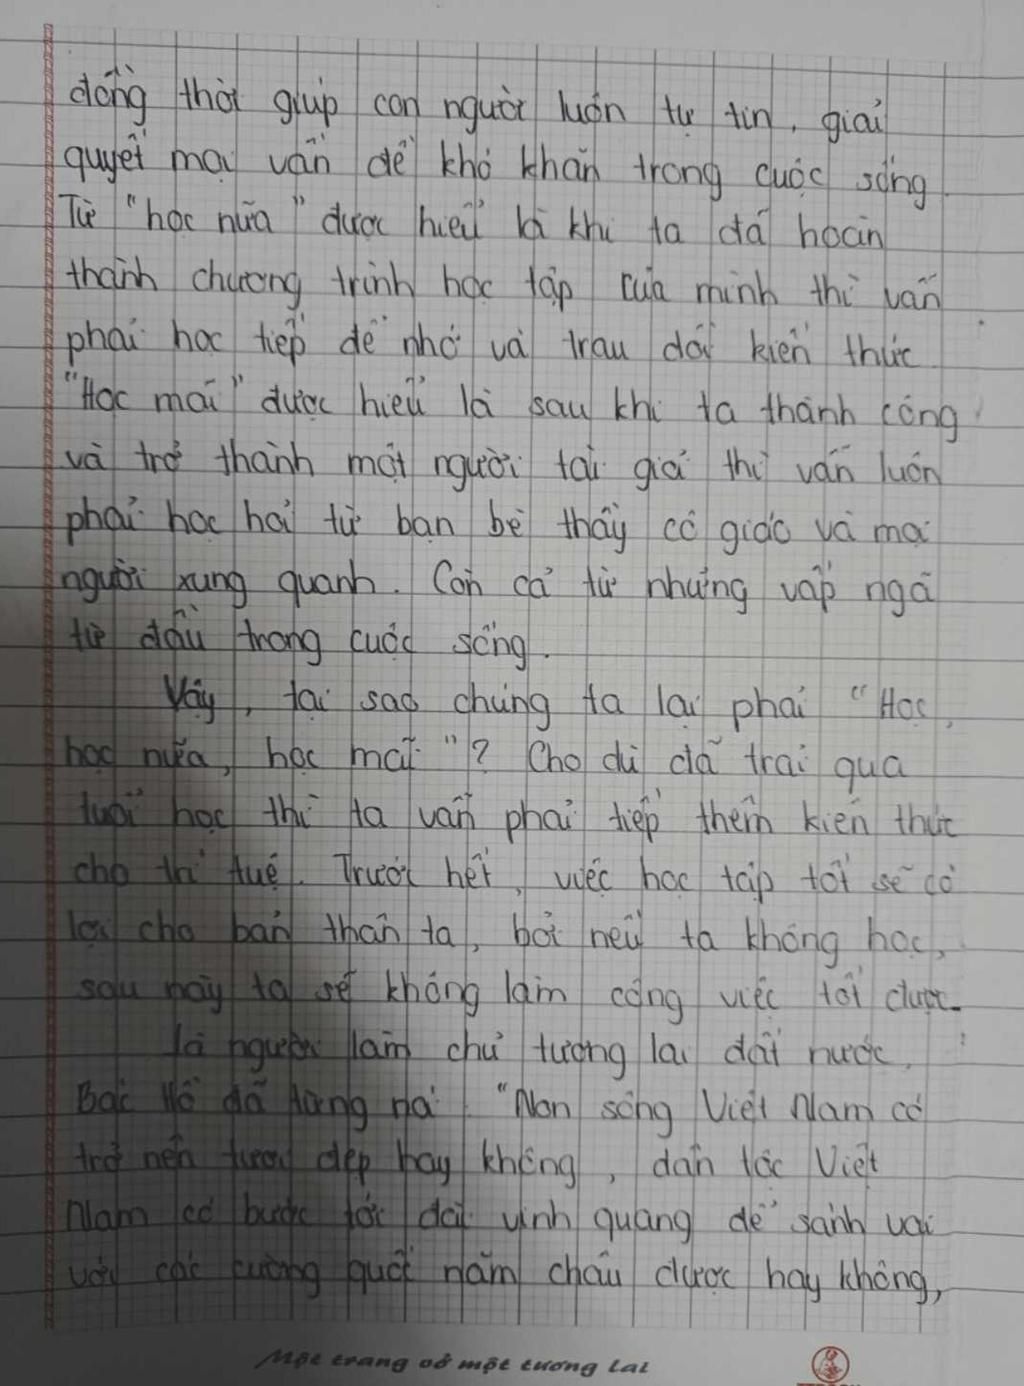 đồng thời giúp con người luôn tự tin, giải
quyết mọi vấn đề khó khăn trong cuộc sống.
Từ "học nữa" được hiểu là khi ta đã hoàn
thành chương trình học tập của mình thì vẫn
phải học tiếp để nhớ và trau dồi kiến thức.
"Học mãi" được hiểu là sau khi ta thành công
và trở thành một người tài giỏi thì vẫn luôn
phải học hỏi từ bạn bè thầy cô giáo và mọi
người xung quanh. Còn cả từ những vấp ngã
từ đầu trong cuộc sống.
Vậy, tại sao chúng ta lại phải "Học,
học nữa, học mãi"? Cho dù đã trải qua
tuổi học thì ta vẫn phải tiếp thêm kiến thức
cho trí tuệ. Trước hết, việc học tập tốt sẽ có
lợi cho bản thân ta, bởi nếu ta không học,
sau này ta sẽ không làm công việc tốt được.
Là người làm chủ tương lai đất nước,
Bác Hồ đã từng nói: "Non sông Việt Nam có
trở nên tươi đẹp hay không, dân tộc Việt
Nam có bước tới đài vinh quang để sánh vai
với các cường quốc năm châu được hay không,
Một trang vở một tương lai